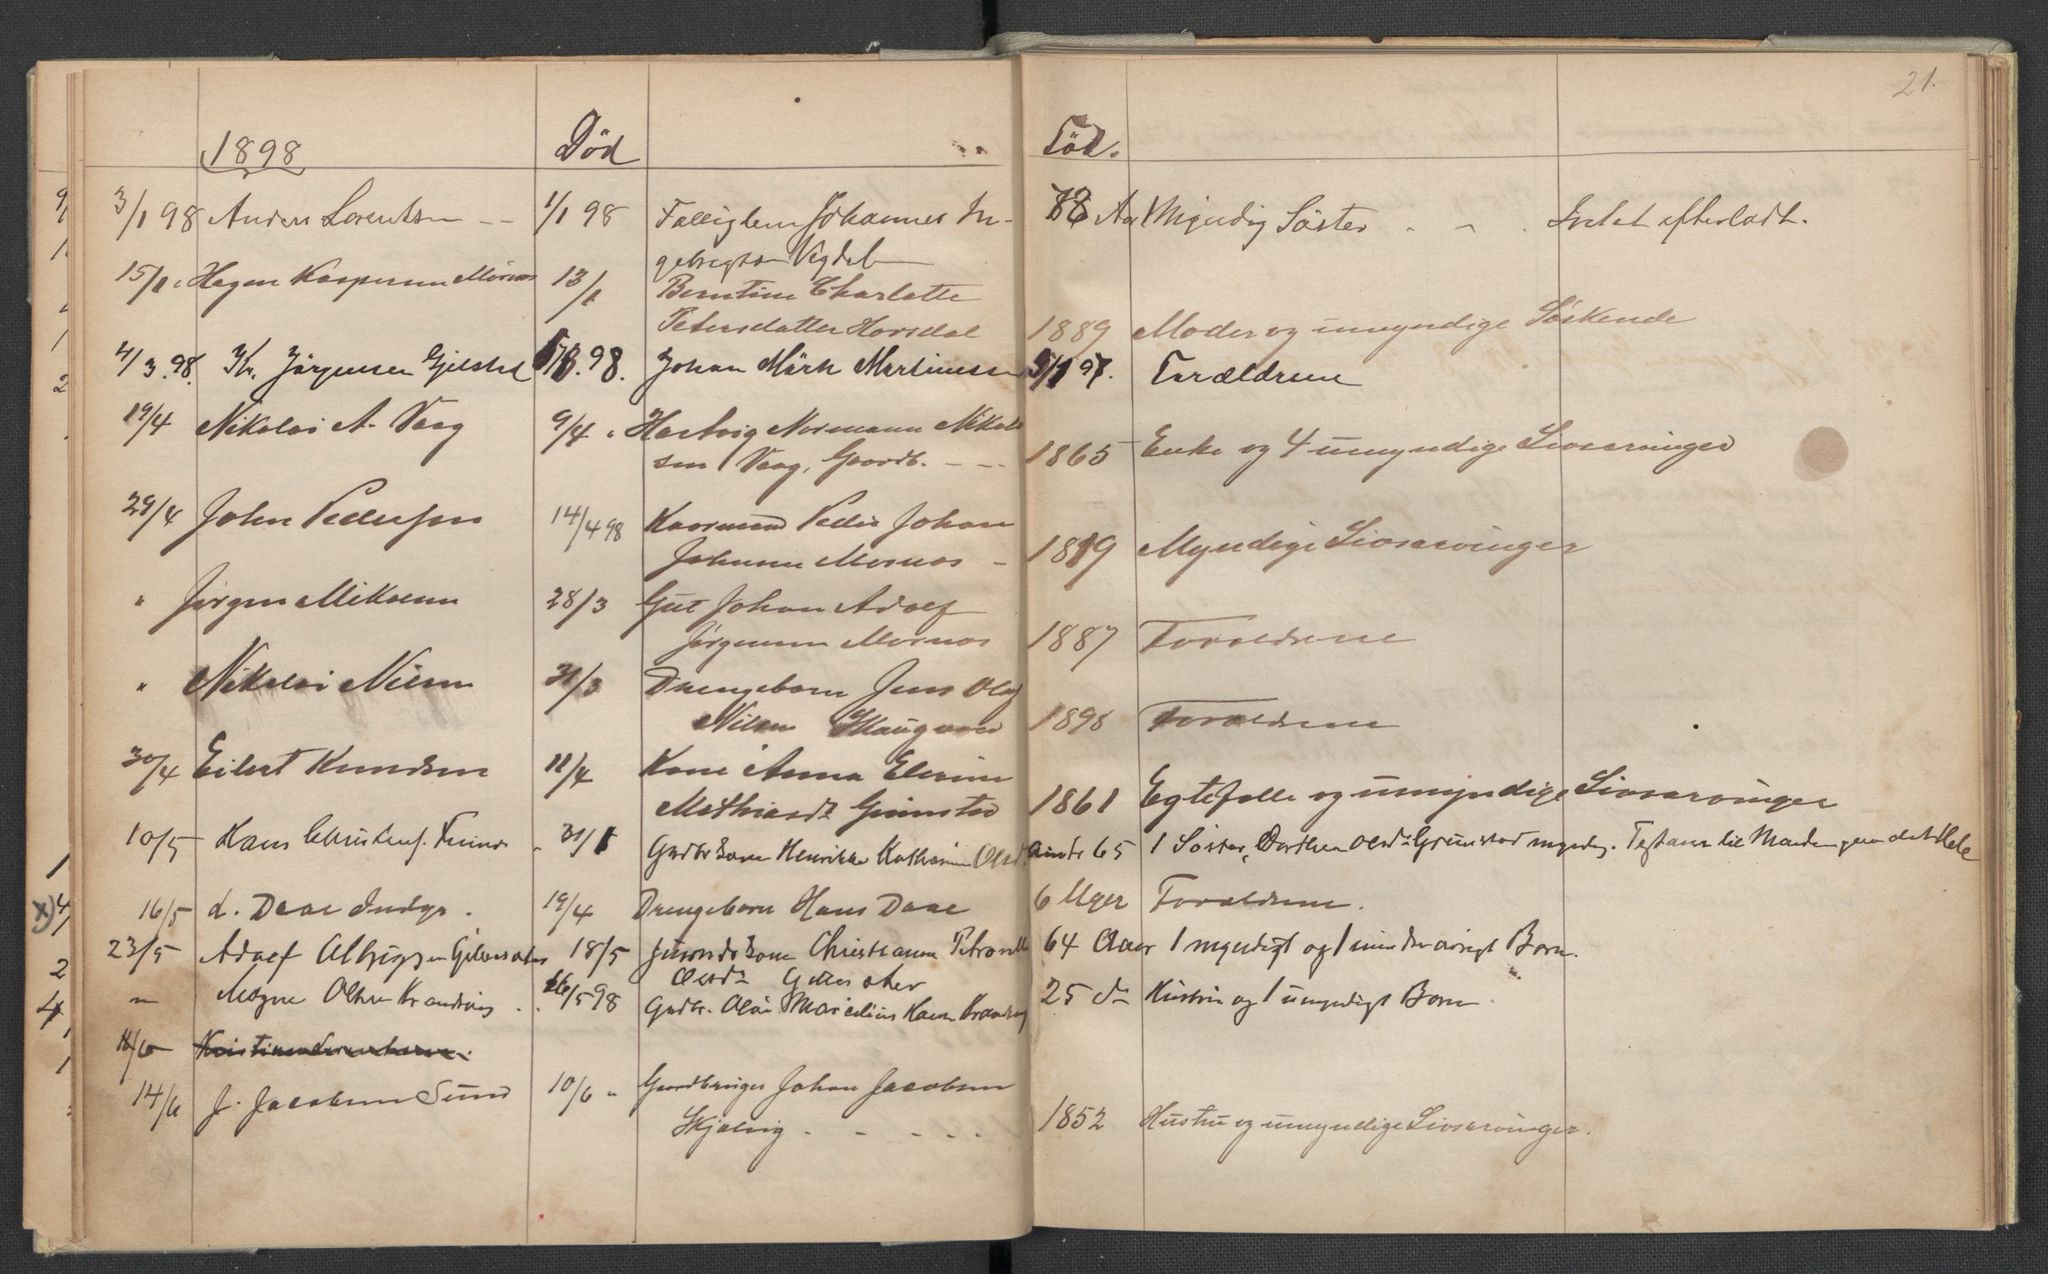 21.
1898 Død Fød.
3/1 98 Anders Lorentsen 1/1 98 Fattiglem Johannes In-
gebrigtsen Vegdal 78 Aar Myndig Søster Intet efterladt.
15/1 Hagen Kaspersen Mornos 13/1 Berntine Charlotte
Petersdatter Horsdal 1889 Moder og umyndige Søskende
4/3.98. Jørgensen 98. Johan Mørk Martinussen 97. Forældrene
19/4 Nikolai A. Vaag 9/4 Hartvig Normann Nikolai
sen Vaag, Gaardb. 1865 Enke og 4 umyndige Livsarvinger
29/4 John Pedersen 14/4 98 Kaarmand Peder Johan
Johnsen Mornos 1819 Myndige Livsarvinger
" Jørgen Mikalsen 28/3 Gut Johan Adolf
Jørgensen Mornos 1887 Forældrene
" Nikolai Nilsen 31/3 Drengebarn Jens Olaf
Nilsen 1898 Forældrene
30/4 Eilert Knudsen 11/4 Kone Anna Elerine
Mathiasdt Grimstad 1861 Egtefælle og umyndige Livsarvinger
10/5 Hans Christens. 31/1 Gaardbr Kone Henrikke Katharina Olsd. 65 1 Søster, Dorthea Olsd. Grimstad myndig. Testam til Manden
16/5 L. Daae Indyr. 19/4 Drengebarn Hans Daae 6 Uger Forældrene.
23/5 Adolf Albrigtsen 18/5 Christianne Petronelle
Olsdr 64 Aar 1 myndigt og 1 mindreaarigt Barn.
" Mogne Olsen 26/5 98 Gaardbr. Olai Marcelius Hansen 25 do Hustru og 1 umyndigt Barn
14/6 J. Jacobsen Sund 10/6 " Gaardbruger Johan Jacobsen
Skjelvig 1852 Hustru og umyndige Livsarvinger.